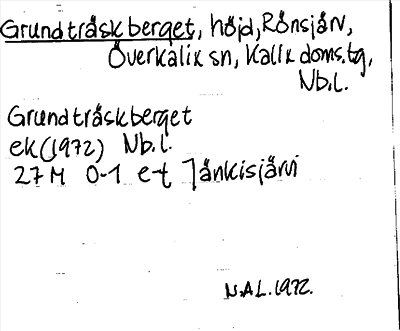 Grundträskberget, höjd, Rönsjärv,
Överkalix sn, Kalix doms.tg,
Nb.l.
Grundträskberget
ek (1972) Nb.l.
27 M 0-1 e-f Jänkisjärvi
N.A.L. 1972.